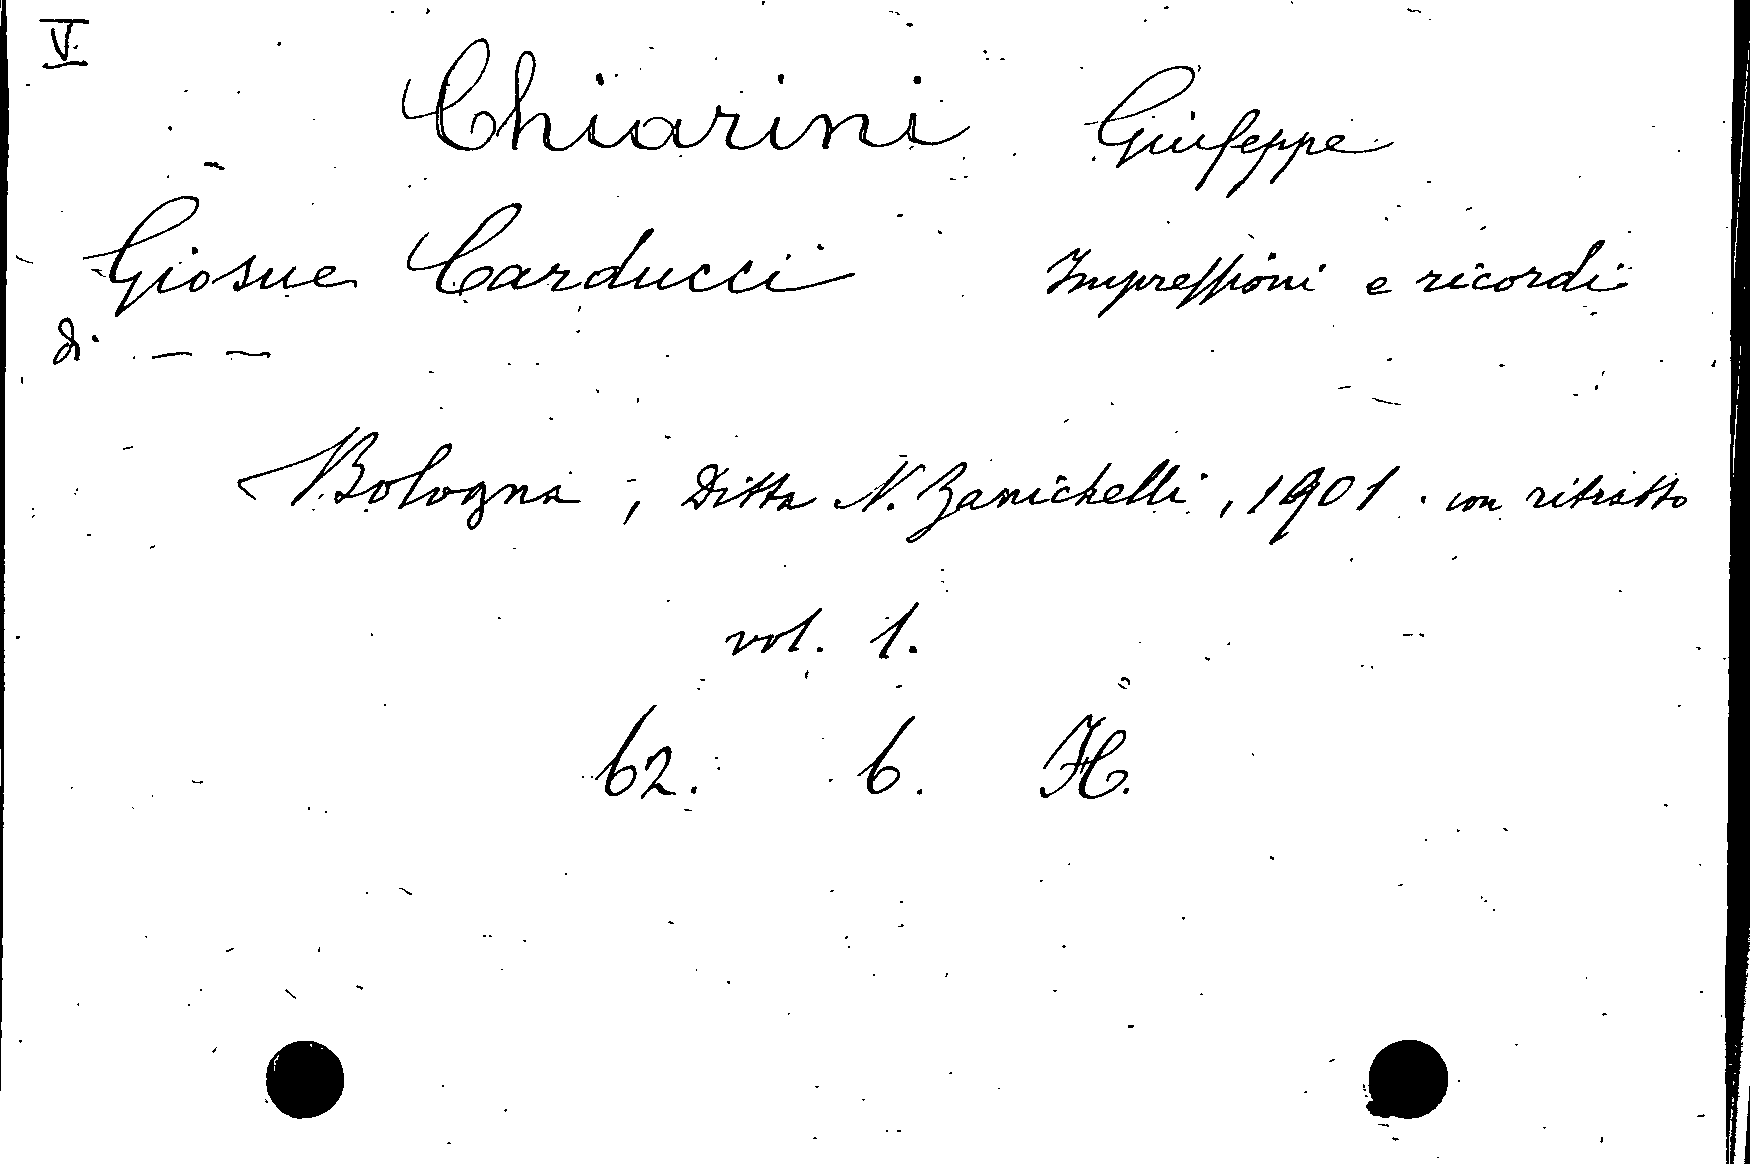 V.
Chiarini Giuseppe
Giosue Carducci Impressioni e ricordi
di — —
Bologna, Ditta N. Zanichelli, 1901. con ritratto
vol. 1.
62. 6. H.